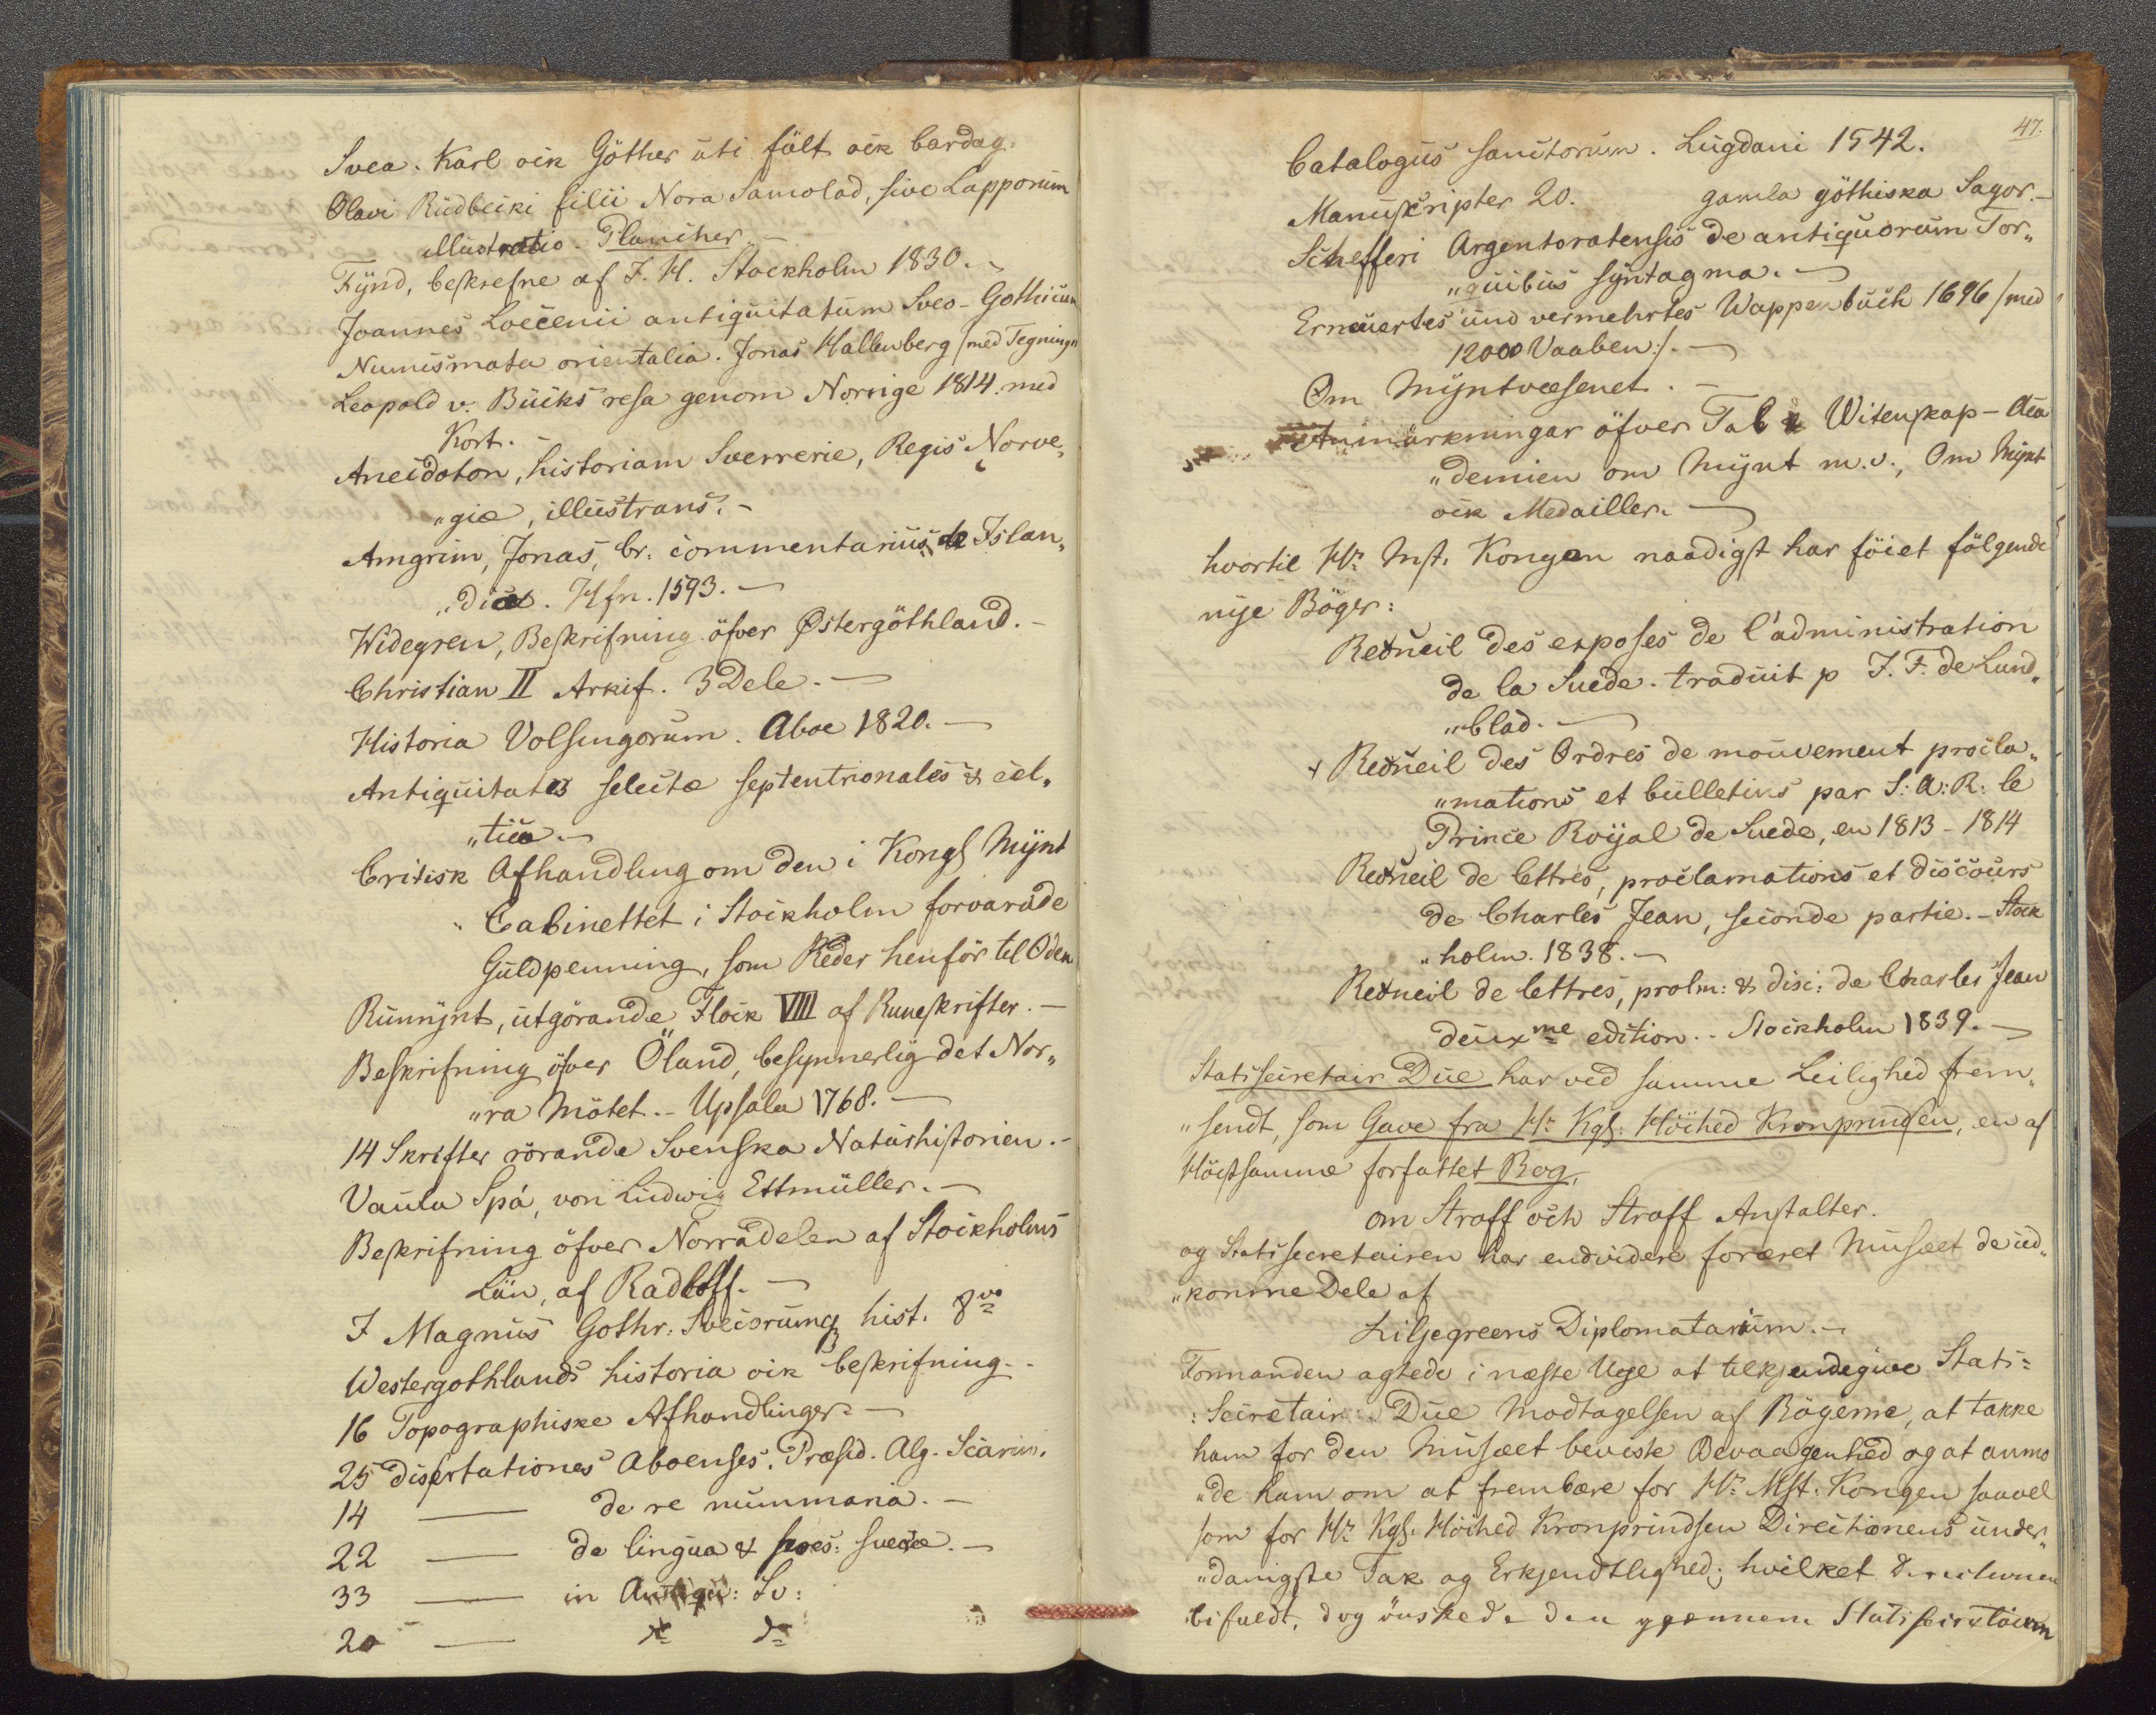 Svea. Karl ock Göther uti fält ock bardag.
Olavi Rudbecki filii Nora Samolad, sive Lapporum
illustratio. Plancher –
Fÿnd, beskrefne af J. H. Stockholm 1830. –
Joannes Loccenii antiquitatum Sveo-Gothicum
Numismata orientalia. Jonas Hallenberg /med Tegning„
Leopold v. Bucks resa genom Norrige 1814. med
Kort. –
Anecdoton, historiam Sverrerie, Regis Norve„
„giæ, illustrans. –
Arngrim, Jonas, br. commentarius de Islan„
„dia. Hfn. 1593. –
Widegren, Beskrifning öfver Østergöthland. –
Christian II Arkif. 3 Dele. –
Historia Volsungorum. Aboe 1820. –
Antiquitates selectæ septentrionales & cel„
„ticæ. –
Critisk Afhandling om den i Kongl Mÿnt
Cabinettet i Stockholm forvarade
Guldpenning, som Reder henför til Oden
Runmÿnt, utgörande Flock VIII af Runeskrifter. –
Beskrifning öfver Öland, besynnerlig det Nor„
„ra Mötet. – Upsala 1768. –
14 Skrifter rörande Svenska Naturhistorien. –
Vaulu Spá, von Ludwig Ettmüller. –
Beskrifning öfver Norradelen af Stockholms
Län, af Radloff. –
J Magnus Gothr: Svecorumq hist. 8vo
Westergothlands historia ock beskrifning. –
16 Topographiske Afhandlinger. –
25 disertationes Aboenses. Præsid. Alg. Scarin.
14 — de re nummaria. –
22 — de lingua & poes: sveciæ. –
33 — in Antiqu: Sv:
20 — do do
47.
Catalogus sanctorum. Lugdani 1542.
Manuskripter 20. gamla göthiska Sagor. –
Schefferi Argentoratensis de antiquorum Tor„
„quibus syntagma. –
Erneuertes und vermehrtes Wappenbuch 1696 /med
12000 Vaaben:/. –
Om Mÿntvæsenet. –
Anmärkningar öfver Tal i Witenskap-Aca
„demien om Mÿnt m.v., Om Mÿnt
ock Medailler. –
hvortil Hs. Mst. Kongen naadigst har föiet fölgende
nÿe Böger:
Recueil des exposes de l'administration
de la Suede. traduit p J. F. de Lund„
„blad. –
+ Recueil des Ordres de mouvement procla„
„mations et bulletins par S: A: R: le
Prince Roÿal de Suede, en 1813 – 1814
Recueil de lettres, proclamations et discours
de Charles Jean, seconde partie. – Stock
„holm. 1838. –
Recueil de lettres, prolm: & disc: de Charles Jean
deuxme edition. – Stockholm 1839. –
Statssecretair Due har ved samme Leilighed frem„
„sendt, som Gave fra Hs. Kgl: Höihed Kronprindsen, en af
Höistsamme forfattet Bog,
om Straff och Straff Anstalter.
og Statssecretairen har endvidere foræret Musæet de ud„
„komne Dele af
Liljegreens Diplomatarium. –
Formanden agtede i næste Uge at tilkjendegive Stats:
:Secretair Due Modtagelsen af Bögerne, at takke
ham for den Musæet beviste Bevaagenhed og at anmo
„de ham om at frembære for Hs. Mst: Kongen saavel
som for Hs. Kgl. Höihed Kronprindsen Directionens under„
„danigste Tak og Erkjendtlighed; hvilket Directionen
bifaldt, dog önskede den gjennem Statssecretairen